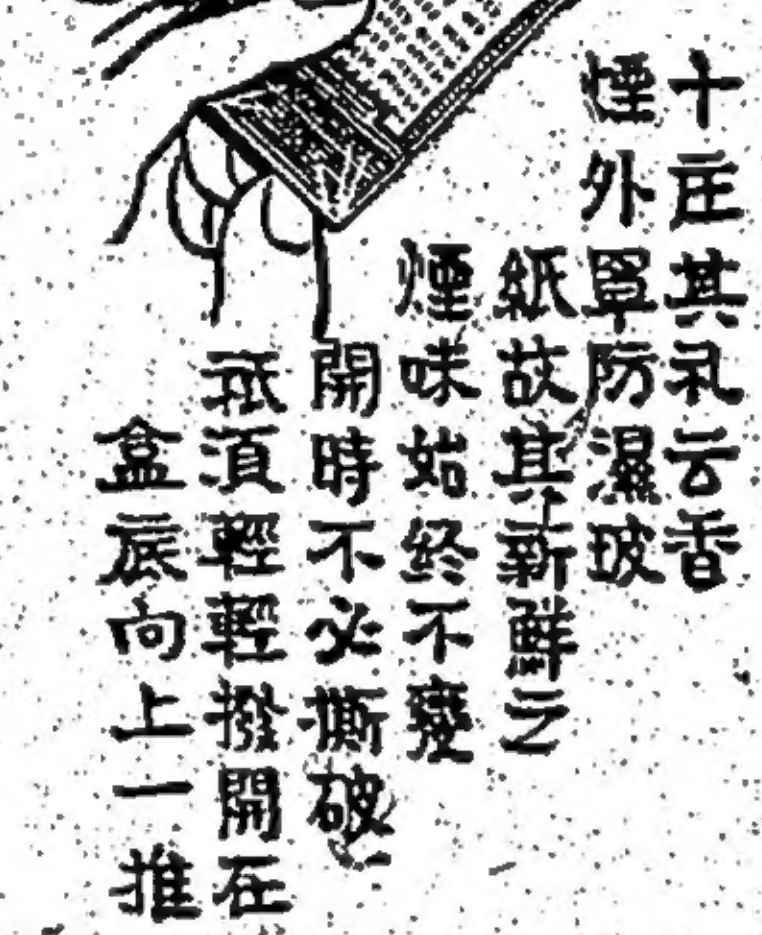 十庄其礼云香
煙外罩防濕玻
紙故其新鮮之
煙味始终不變
開時不必撕破
祗須輕輕撥開在
盒底向上一推